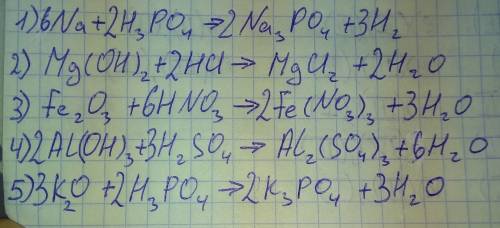 1) 6Na + 2H₃PO₄ → 2Na₃PO₄ + 3H₂
2) Mg(OH)₂ + 2HCl → MgCl₂ + 2H₂O
3) Fe₂O₃ + 6HNO₃ → 2Fe(NO₃)₃ + 3H₂O
4) 2Al(OH)₃ + 3H₂SO₄ → Al₂(SO₄)₃ + 6H₂O
5) 3K₂O + 2H₃PO₄ → 2K₃PO₄ + 3H₂O